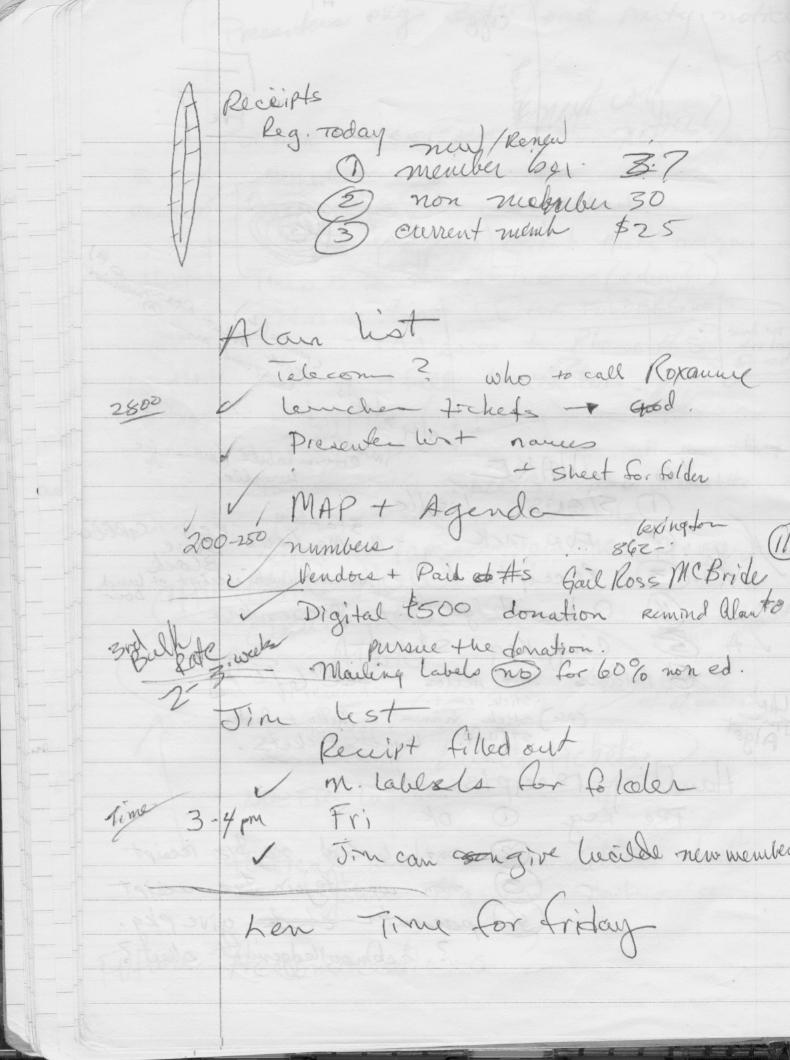 Receipts
Reg. Today
new/Renew
① member 37
② non member 30
③ current memb $25
Alan list
Telecomm ? who to call Roxanne
2800 ✓ luncheon tickets → good.
✓ Presenter list names
+ sheet for folder
✓ MAP + Agenda
Lexington
200-250 numbers 862- 11
✓ Vendors + Paid #s Gail Ross McBride
✓ Digital $500 donation remind Alan to
pursue the donation.
3rd Bulk Rate
2-3 weeks
Mailing Labels no for 60% non ed.
Jim list
Receipt filled out
✓ m. labels for folder
Time 3-4pm Fri
✓ Jim can give Lucilde new member
Len Time for friday